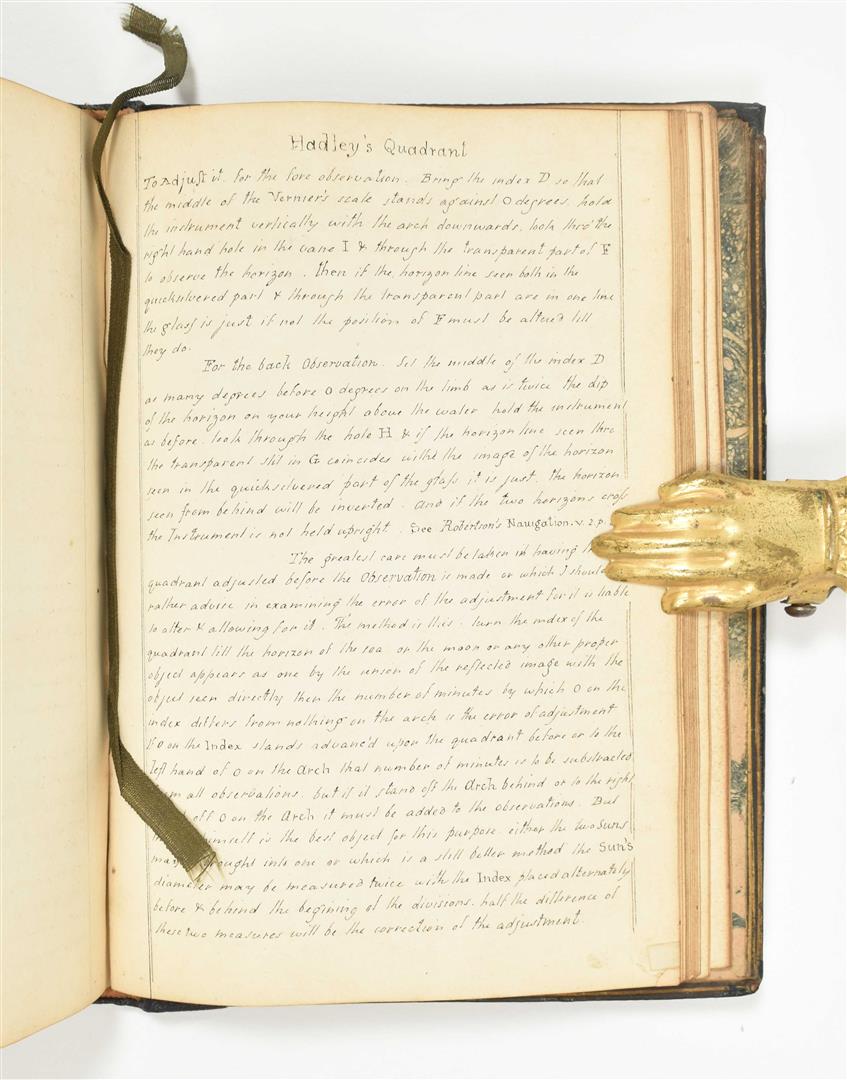 Hadley's Quadrant
To Adjust it. for the fore observation. Bring the index D so that
the middle of the Vernier's scale stands against 0 degrees, hold
the instrument vertically with the arch downwards, look thro' the
right hand hole in the vane I & through the transparent part of F
to observe the horizon. then if the horizon line seen both in the
quicksilvered part & through the transparent part are in one line
the glass is just if not the position of F must be altered till
they do.
For the back Observation. Set the middle of the index D
as many degrees before 0 degrees on the limb as is twice the dip
of the horizon on your height above the water hold the instrument
as before. look through the hole H & if the horizon line seen thro
the transparent slit in G coincides with the image of the horizon
seen in the quicksilvered part of the glass it is just. the horizon
seen from behind will be inverted. And if the two horizons cross
the Instrument is not held upright. See Robertson's Navigation. v. 2. p.
The greatest care must be taken in having
quadrant adjusted before the Observation is made or which I should
rather advise in examining the error of the adjustment for it is liable
to alter & allowing for it. The method is this. turn the index of the
quadrant till the horizon of the sea or the moon or any other proper
object appears as one by the union of the reflected image with the
object seen directly then the number of minutes by which 0 on the
index differs from nothing on the arch is the error of adjustment
If 0 on the Index stands advanc'd upon the quadrant before or to the
left hand of 0 on the Arch that number of minutes is to be substracted
all observations. but if it stand off the Arch behind or to the right
off 0 on the Arch it must be added to the observations. But
himself is the best object for this purpose. either the two Suns
may into one or which is a still better method the Sun's
diameter may be measured twice with the Index placed alternately
before & behind the begining of the divisions. half the difference of
these two measures will be the correction of the adjustment.